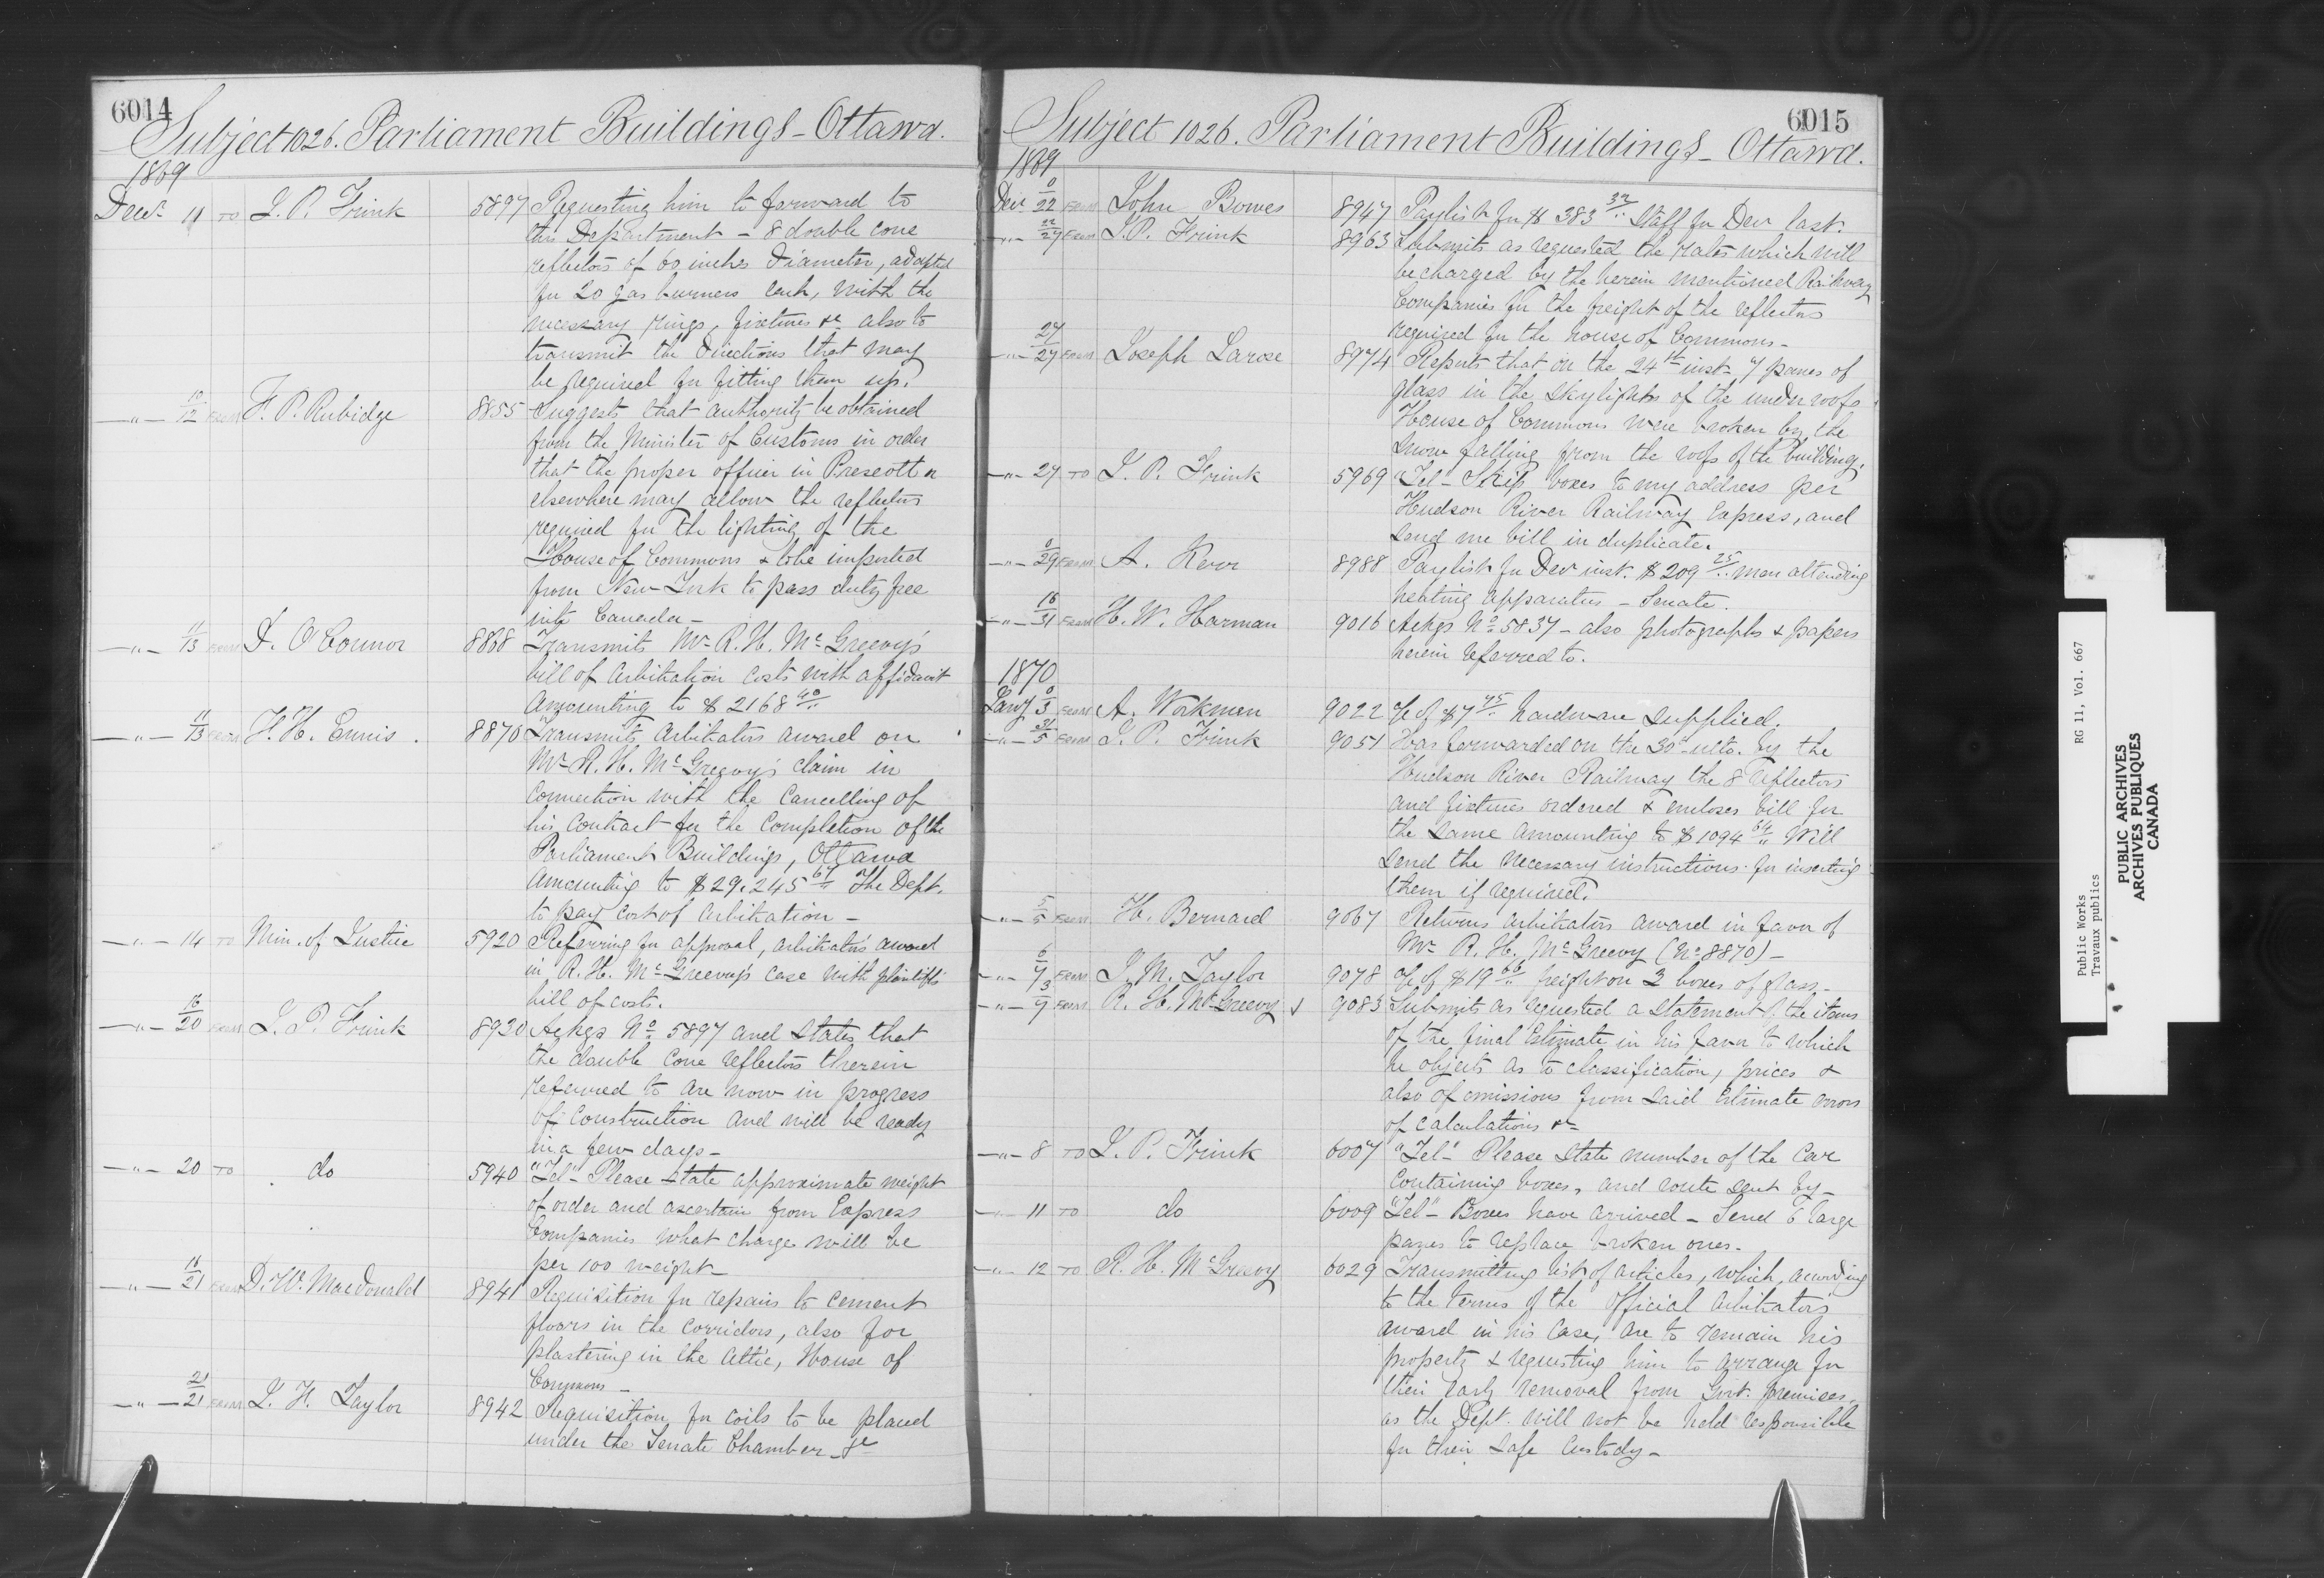 6014
Subject 1026. Parliament Buildings - Ottawa.
1869
Decr. 11 TO I. P. Frink 5897 Requesting him to forward to
this Department - 8 double cone
reflectors of 60 inches diameter, adapted
for 20 gas burners each, with the
necessary rings, fixtures &c. also to
transmit the directions that may
be required for fitting them up.
-"- 10/12 FROM F. P. Rubidge 8855 Suggests that authority be obtained
from the Minister of Customs in order
that the proper officer in Prescott or
elsewhere may allow the reflectors
required for the lighting of the
House of Commons & to be imported
from New-York to pass duty free
into Canada -
-"- 11/13 FROM D. O'Connor 8868 Transmits Mr. R. H. McGreevy's
bill of Arbitration costs with affidavit
amounting to $2168 40/..
-"- 11/13 FROM H. H. Ennis. 8870 Transmits Arbitrators award on
Mr. R. H. McGreevy's claim in
connection with the cancelling of
his contract for the completion of the
Parliament Buildings, Ottawa
amounting to $29,245 67/.. The Dept.
to pay cost of arbitration -
-"- 14 TO Min. of Justice 5920 Referring for approval, arbitrators award
in R. H. McGreevy's case with plaintiff's
bill of costs.
-"- 16/20 FROM I. P. Frink 8930 Ackgs No. 5897 and states that
the double cone reflectors therein
referred to are now in progress
of construction and will be ready
in a few days -
-"- 20 TO do 5940 "Tel" - Please state approximate weight
of order and ascertain from Express
Companies what charge will be
per 100 weight -
-"- 18/21 FROM D. W. Macdonald 8941 Requisition for repairs to cement
floors in the corridors, also for
plastering in the attic, House of
Commons -
-"- 21/21 FROM J. H. Taylor 8942 Requisition for coils to be placed
under the Senate Chamber &c
6015
Subject 1026. Parliament Buildings - Ottawa.
1869
Decr. 0/22 FROM John Bowes 8947 Paylist for $383 32/.. Staff for Decr last.
-"- 22/27 FROM I. P. Frink 8963 Submits as requested the rates which will
be charged by the herein mentioned Railway
Companies for the freight of the reflectors
required for the house of Commons -
-"- 27/27 FROM Joseph Larose 8974 Reports that on the 24th inst. 7 panes of
glass in the skylights of the under roofs
House of Commons were broken by the
snow falling from the roofs of the building.
-"- 27 TO I. P. Frink 5969 "Tel - Ship boxes to my address per
Hudson River Railway Express, and
send me bill in duplicate.
-"- 0/29 FROM A. Kerr 8988 Paylist for Decr inst. $209 25/.. men attending
heating apparatus - Senate.
-"- 16/31 FROM H. W. Harman 9016 Ackgs No. 5837 - also photographs & papers
herein referred to.
1870
Jany 0/3 FROM A. Workman 9022 a/c of $7 75/.. hardware supplied.
-"- 31/5 FROM I. P. Frink 9051 Has forwarded on the 30th ulto. by the
Hudson River Railway the 8 reflectors
and fixtures ordered & encloses bill for
the same amounting to $1094 64/.. Will
send the necessary instructions for inserting
them if required.
-"- 5/5 FROM H. Bernard 9067 Returns arbitrators award in favor of
Mr. R. H. McGreevy (No. 8870) -
-"- 6/7 FROM J. M. Taylor 9078 a/c of $19 66/.. freight on 3 boxes of glass -
-"- 3/7 FROM R. H. McGreevy 9083 Submits as requested a statement of the items
of the final Estimate in his favor to which
he objects as to classification, prices &
also of omissions from said Estimate errors
of calculations &c
-"- 8 TO I. P. Frink 6007 "Tel" - Please state number of the car
containing boxes, and route sent by -
-"- 11 TO do 6009 "Tel" - Boxes have arrived - Send 6 large
panes to replace broken ones -
-"- 12 TO R. H. McGreevy 6029 Transmitting list of articles, which, according
to the terms of the official arbitrators'
award in his case, are to remain his
property & requesting him to arrange for
their early removal from Govt. premises,
as the Dept. will not be held responsible
for their safe custody -
Public Works RG 11, Vol. 667
Travaux publics
PUBLIC ARCHIVES
ARCHIVES PUBLIQUES
CANADA